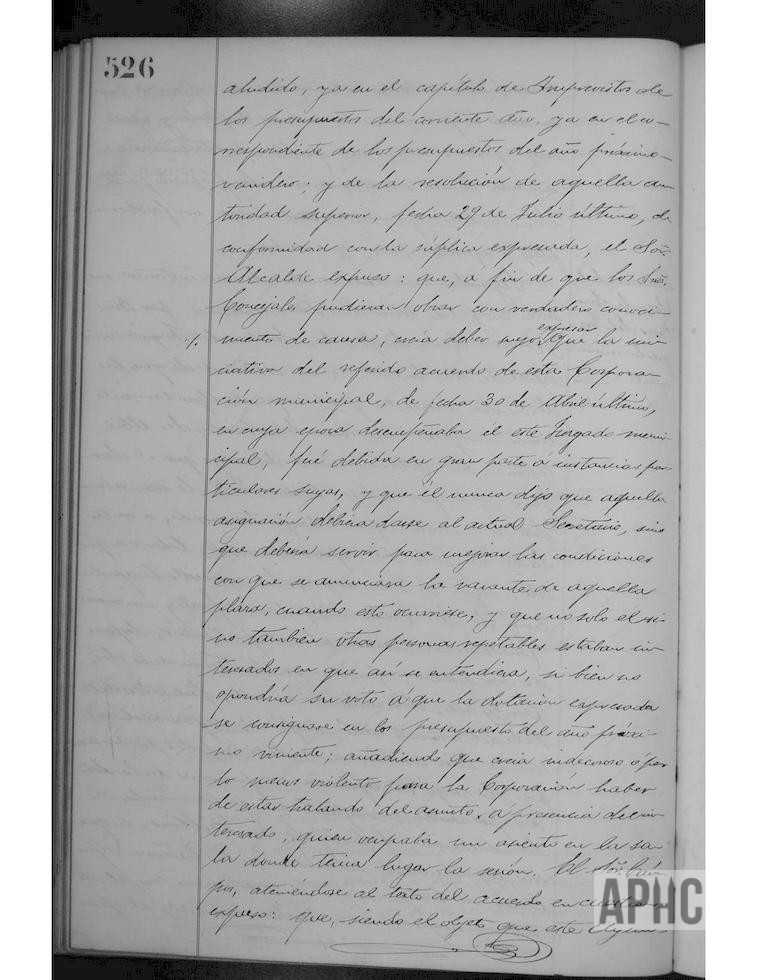 526
aludido, ya en el capítulo de Imprevistos de
los presupuestos del corriente año, ya en el co-
rrespondiente de los presupuestos del año próximo
venidero; y de la resolución de aquella au-
toridad superior, fecha 29 de Julio último, de
conformidad con la súplica expresada, el Sor.
Alcalde expuso: que, á fin de que los Sres.
Concejales pudieran obrar con verdadero conoci-
expresar
./. miento de causa, creía deber suyo que la ini-
ciativa del referido acuerdo de esta Corpora-
ción municipal, de fecha 30 de Abril último,
en cuya epoca desempeñaba él este Juzgado muni-
cipal, fué debida en gran parte á instancias par-
ticulares suyas, y que él nunca dijo que aquella
asignación debiera darse al actual Secretario, sino
que debería servir para mejorar las condiciones
con que se anunciara la vacante de aquella
plaza, cuando esto ocurriese, y que no solo el si-
no tambien otras personas repetables estaban in-
teresados en que así se entendiera, si bien no
opondría su voto á que la dotación expresada
se consignase en los presupuestos del año próxi-
mo viniente; añadiendo que creía indecoroso ó por
lo menos violento para la Corporación haber
de estar tratando del asunto, á presencia del in-
teresado, quien ocupaba un asiento en la sa-
la donde tenía lugar la sesión. El Sor.
pos, ateniéndose al texto del acuerdo en cuestión
expuso: que, siendo el objeto que este Ayun-
APHC